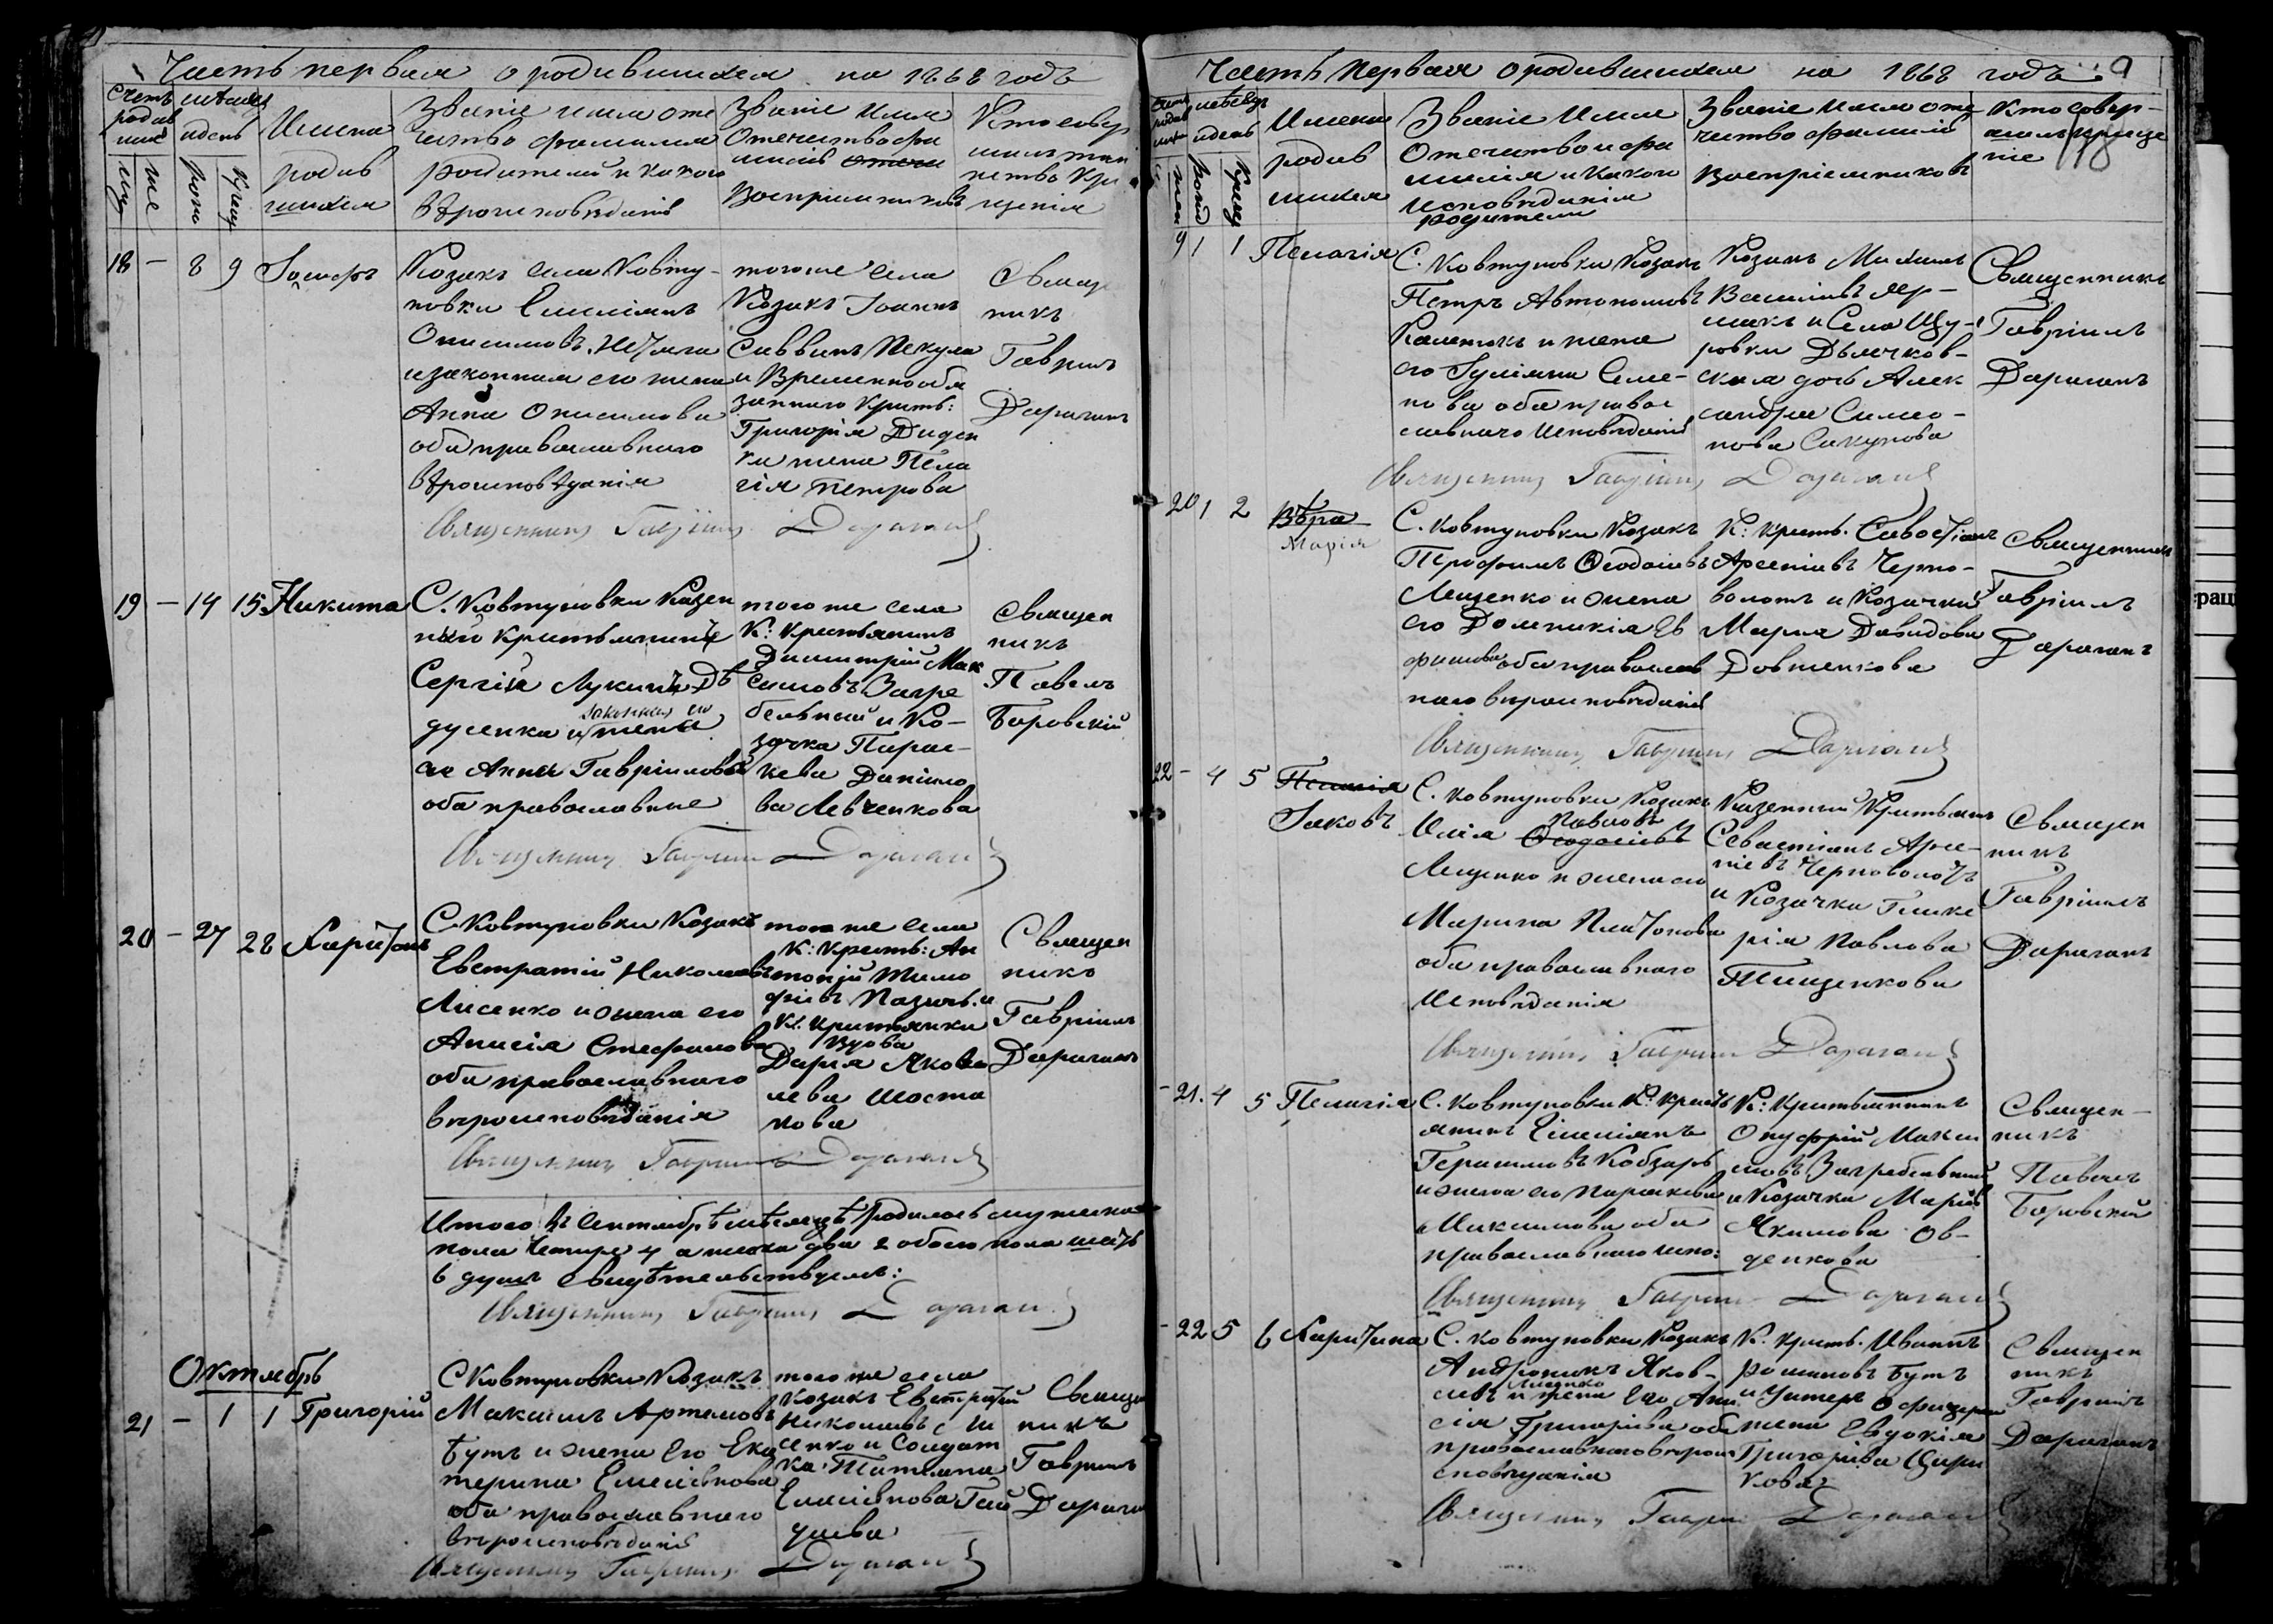 Часть первая о родившихся на 1868 годъ
Счетъ родившихся
мѣсяцъ и день
Имена родившихся
Званіе имя отечество фамилія родителей и какого вѣроисповѣданія
Званіе Имя Отечество фамилія Воспріемниковъ
Кто совер шилъ таинство Крещенія
18 — 8 9 Іосифъ
Козакъ села Ковту-
новки Емеліянъ
Онисимовъ
и законная его жена
Анна Онисимова
оба православнаго
вѣроисповѣданія
того же села
Козакъ Іоаннъ
Саввинъ Пекула
и Временнообя
заннаго Крить:
Григорія Диден
ки жена Пела
гія Петрова
Священ
никъ
Гавріилъ
Дараганъ
Священникъ Гавріилъ Дараганъ
19 — 14 15 Никита
С. Ковтуновки Казен
ный Критьянинъ
Сергій Лукинъ Дѣ
дусенка и законная его жена
Анна Гавріилова
оба православные
того же села
К: Критьянинъ
Димитрій Мак
симовъ Загре
бельный и Ко-
зачка Парас-
кева Даніило
ва Левченкова
Священ
никъ
Павелъ
Боровскій
Священникъ Гавріилъ Дараганъ
20 — 27 28 Харитонъ
С Ковтуновки Козакъ
Евстратій Николаевъ
Лисенко и жена его
Анисія Стефанова
оба православнаго
вѣроисповѣданія
того же села
К: Крить: Ан
тоній Тимо
фіевъ
К: Критьянка
Вдова
Дарія Яков
лева Шоста
кова
Священ
никъ
Гавріилъ
Дараганъ
Священникъ Гавріилъ Дараганъ
Итого въ Сентябрѣ мѣсяцѣ родилось мужеска
пола четыре 4 а женска два 2 обоего пола шесть
6 душъ свидѣтельствуемъ:
Священникъ Гавріилъ Дараганъ
Октябрь
21 — 1 1 Григорій
С Ковтуновки Козакъ
Максимъ Артемовъ
Бутъ и жена Его Ека
терина Емеліянова
оба православнаго
вѣроисповѣданія
того же села
Козакъ Евстратій
Николаевъ Ли
сенко и Солдат
ка Татіяна
Емеліянова
Священ
никъ
Гавріилъ
Дараганъ
Священникъ Гавріилъ Дараганъ
Часть Первая о родившихся на 1868 годъ
9
118
Счетъ родившихся
мѣсяцъ и день
Имена родив шихся
Званіе Имя Отечество и фа милія и Какого Исповѣданія родители
Званіе Имя оте чество фамилія Воспріемниковъ
Кто совер- шилъ Креще ніе
9 1 1 Пелагія
С. Ковтуновки Козакъ
Петръ Автономовъ
и жена
его Іуліяна Семе-
нова оба правос
лавнаго Исповѣданія
Козакъ Михаилъ
Василіевъ Яр-
макъ и Села Щу-
ровки Дьячков-
ская дочь Алек
сандра Симео-
нова Сакунова
Священникъ
Гавріилъ
Дараганъ
Священникъ Гавріилъ Дараганъ
20 1 2 Вѣра
Марія
С. Ковтуновки Козакъ
Трофимъ Ѳеодосіевъ
Лещенко и жена
его Домникія Ев
фимова оба православ
наго вѣроисповѣданія
К: Крить. Савостіанъ
Арсеніевъ Черно-
волотъ и Козачка
Марія Давидова
Довженкова
Священникъ
Гавріилъ
Дараганъ
Священникъ Гавріилъ Дараганъ
22 — 4 5 Пелагія
Іаковъ
С. Ковтуновки Козакъ
Павловъ
Илія Ѳеодосіевъ
Лещенко и жена его
Марина Платонова
оба православнаго
Исповѣданія
Казенный Критьянинъ
Севастіанъ Арсе-
ніевъ Черноволотъ
и Козачка Глике
рія Павлова
Тищенкова
Священ
никъ
Гавріилъ
Дараганъ
Священникъ Гавріилъ Дараганъ
21. 4 5 Пелагія
С. Ковтуновки К: Крить
янинъ Емеліянъ
Герасимовъ Кобзарь
и жена его Параскева
Максимова оба
православнаго испо:
К: Критьянинъ
Онуфрій Макси
мовъ Загребельный
и Козачка Марія
Якимова Ов-
денкова
Священ-
никъ
Павелъ
Боровскій
Священникъ Гавріилъ Дараганъ
22 5 6 Харитина
С. Ковтуновки Козакъ
Андроникъ Яков-
Лисенко
левъ и жена Его Ани
сія Григоріева оба
православнаго вѣрои
сповѣданія
К. Крить. Иванъ
Романовъ Бутъ
и Унтеръ Офицерска
жена Евдокія
Григоріева Цари
кова
Священ
никъ
Гавріилъ
Дараганъ
Священникъ Гавріилъ Дараганъ